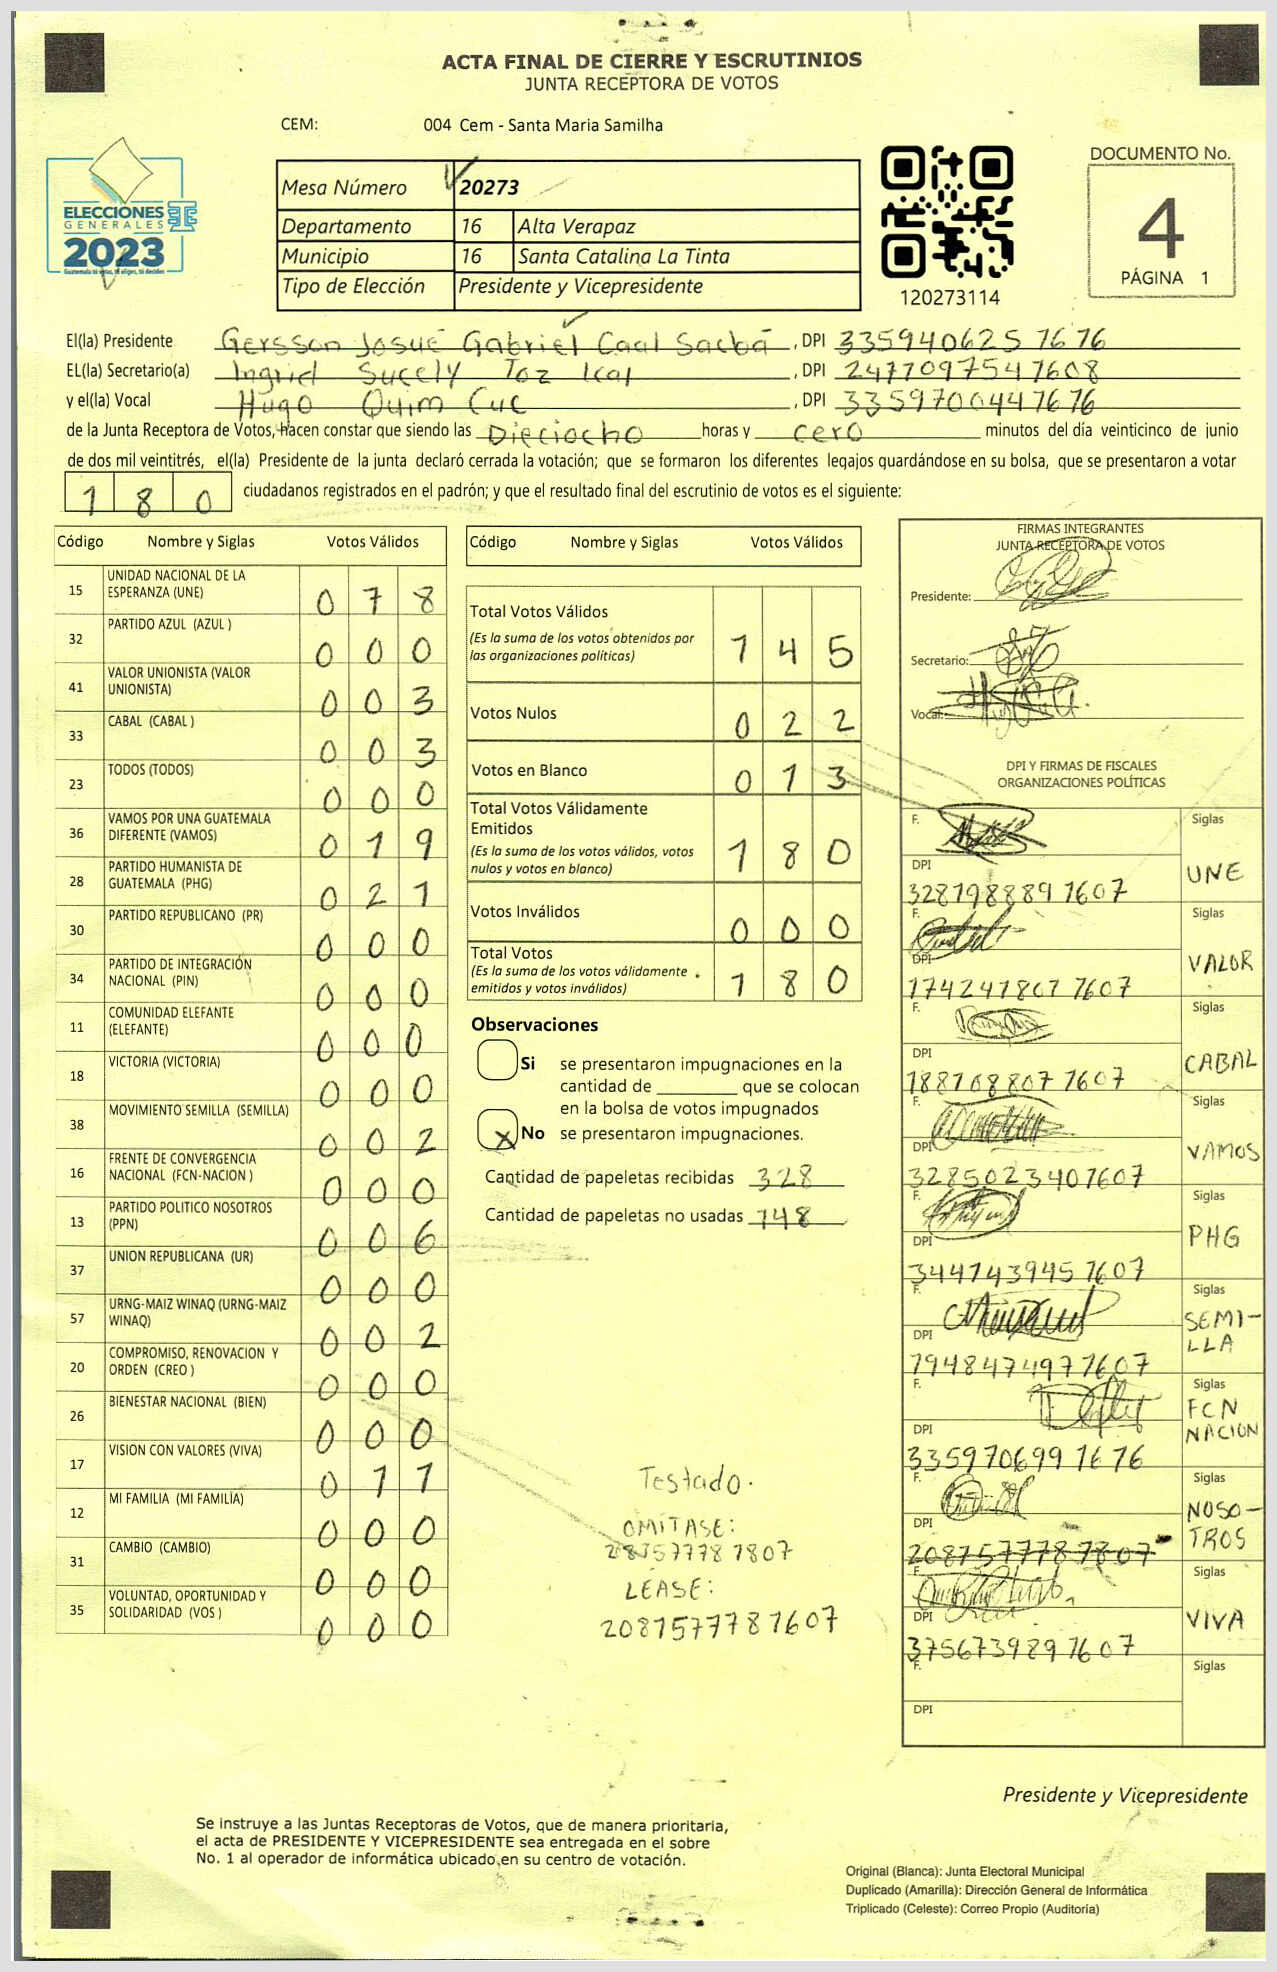 ACTA FINAL DE CIERRE Y ESCRUTINIOS
JUNTA RECEPTORA DE VOTOS
CEM: 004 Cem - Santa Maria Samilha
ELECCIONES
GENERALES
2023
Guatemala tú votas, tú eliges, tú decides
Mesa Número 20273
Departamento 16 Alta Verapaz
Municipio 16 Santa Catalina La Tinta
Tipo de Elección Presidente y Vicepresidente
120273114
DOCUMENTO No.
4
PÁGINA 1
El(la) Presidente Gersson Josué Gabriel Caal Sacbá, DPI 335940625 1676
EL(la) Secretario(a) Ingrid Sucely Toz Ical, DPI 247709754 1608
y el(la) Vocal Hugo Quim Cuc, DPI 335970044 1676
de la Junta Receptora de Votos, hacen constar que siendo las Dieciocho horas y cero minutos del día veinticinco de junio
de dos mil veintitrés, el(la) Presidente de la junta declaró cerrada la votación; que se formaron los diferentes legajos guardándose en su bolsa, que se presentaron a votar
180 ciudadanos registrados en el padrón; y que el resultado final del escrutinio de votos es el siguiente:
Código Nombre y Siglas Votos Válidos
15 UNIDAD NACIONAL DE LA ESPERANZA (UNE) 078
32 PARTIDO AZUL (AZUL ) 000
41 VALOR UNIONISTA (VALOR UNIONISTA) 003
33 CABAL (CABAL ) 003
23 TODOS (TODOS) 000
36 VAMOS POR UNA GUATEMALA DIFERENTE (VAMOS) 019
28 PARTIDO HUMANISTA DE GUATEMALA (PHG) 021
30 PARTIDO REPUBLICANO (PR) 000
34 PARTIDO DE INTEGRACIÓN NACIONAL (PIN) 000
11 COMUNIDAD ELEFANTE (ELEFANTE) 000
18 VICTORIA (VICTORIA) 000
38 MOVIMIENTO SEMILLA (SEMILLA) 002
16 FRENTE DE CONVERGENCIA NACIONAL (FCN-NACION ) 000
13 PARTIDO POLITICO NOSOTROS (PPN) 006
37 UNION REPUBLICANA (UR) 000
57 URNG-MAIZ WINAQ (URNG-MAIZ WINAQ) 002
20 COMPROMISO, RENOVACION Y ORDEN (CREO ) 000
26 BIENESTAR NACIONAL (BIEN) 000
17 VISION CON VALORES (VIVA) 011
12 MI FAMILIA (MI FAMILIA) 000
31 CAMBIO (CAMBIO) 000
35 VOLUNTAD, OPORTUNIDAD Y SOLIDARIDAD (VOS ) 000
Código Nombre y Siglas Votos Válidos
Total Votos Válidos 145
(Es la suma de los votos obtenidos por
las organizaciones políticas)
Votos Nulos 022
Votos en Blanco 013
Total Votos Válidamente
Emitidos 180
(Es la suma de los votos válidos, votos
nulos y votos en blanco)
Votos Inválidos 000
Total Votos 180
(Es la suma de los votos válidamente
emitidos y votos inválidos)
Observaciones
Si se presentaron impugnaciones en la
cantidad de ________ que se colocan
en la bolsa de votos impugnados
X No se presentaron impugnaciones.
Cantidad de papeletas recibidas 328
Cantidad de papeletas no usadas 148
Testado.
OMÍTASE:
LEASE:
208757778 1607
FIRMAS INTEGRANTES
JUNTA RECEPTORA DE VOTOS
Presidente:
Secretario:
Vocal:
DPI Y FIRMAS DE FISCALES
ORGANIZACIONES POLÍTICAS
F. Siglas
DPI UNE
328798889 1607
F. Siglas
DPI VALOR
174247807 1607
F. Siglas
DPI CABAL
188708807 1607
F. Siglas
DPI VAMOS
328502340 1607
F. Siglas
DPI PHG
344743945 1607
F. Siglas
DPI SEMI-
LLA
794847497 1607
F. Siglas
DPI FCN
NACION
335970699 1676
F. Siglas
DPI NOSO-
TROS
208757778 7807
F. Siglas
DPI VIVA
375673989 1607
F. Siglas
DPI
Presidente y Vicepresidente
Se instruye a las Juntas Receptoras de Votos, que de manera prioritaria,
el acta de PRESIDENTE Y VICEPRESIDENTE sea entregada en el sobre
No. 1 al operador de informática ubicado en su centro de votación.
Original (Blanca): Junta Electoral Municipal
Duplicado (Amarilla): Dirección General de Informática
Triplicado (Celeste): Correo Propio (Auditoría)